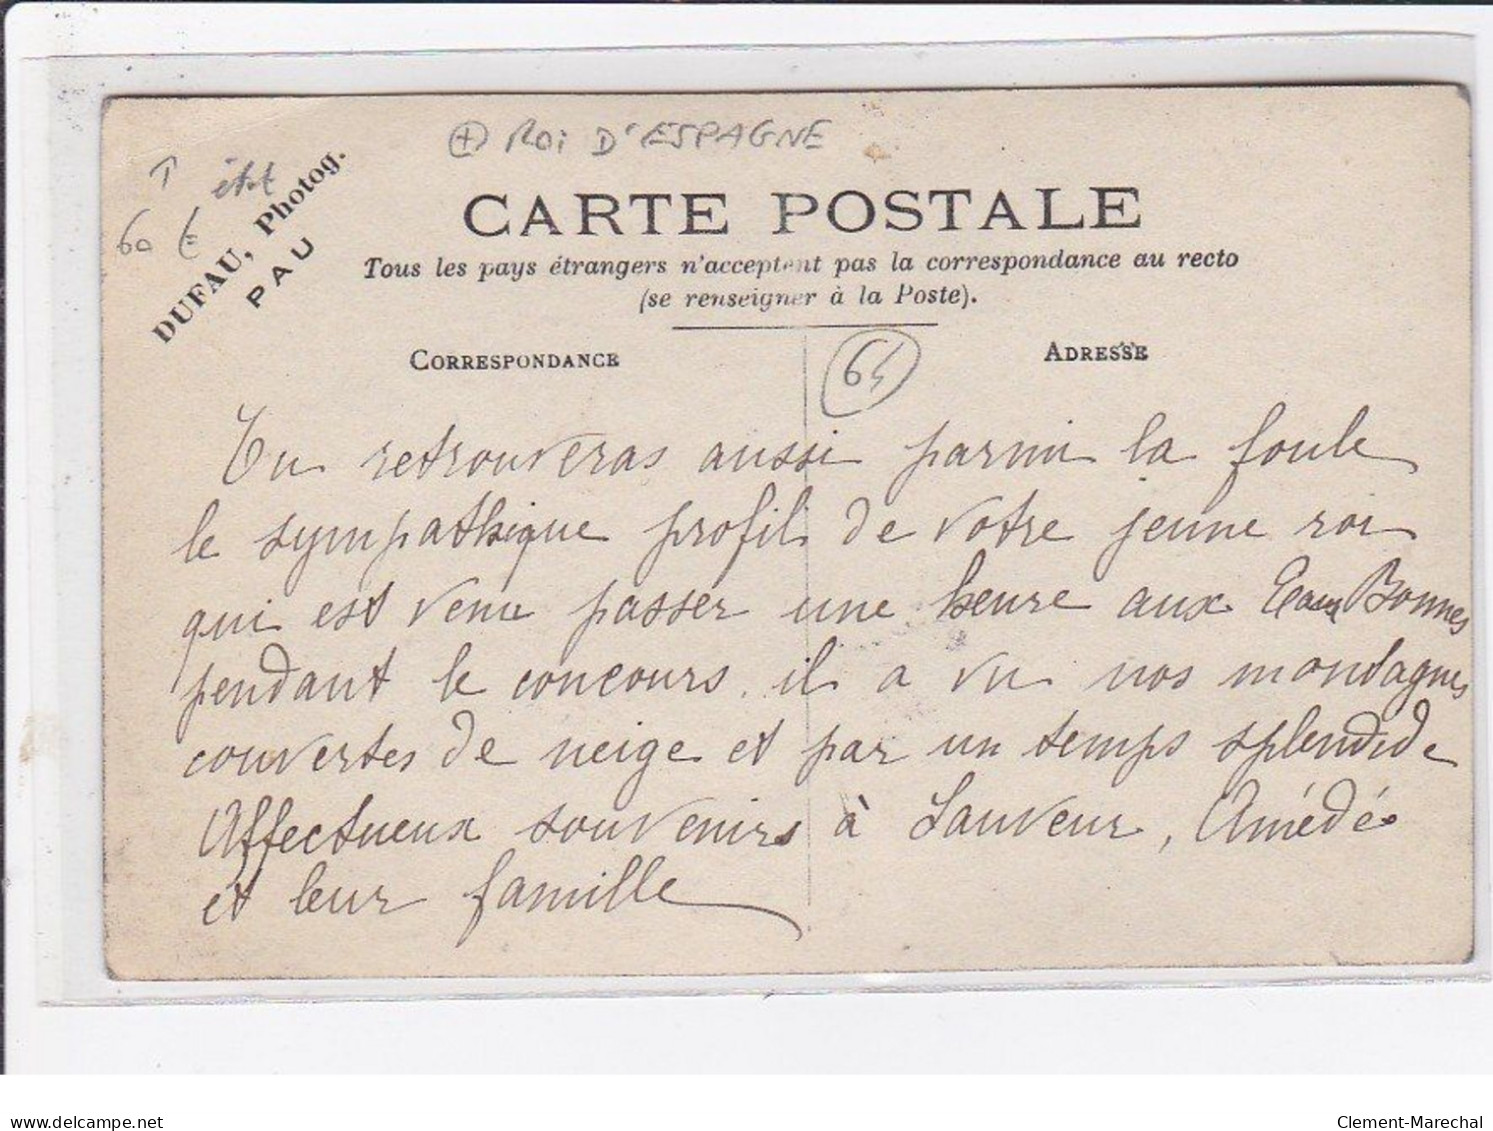 ⊕ ROI D'ESPAGNE
état
60 €
DUFAU, Photog.
PAU
CARTE POSTALE
Tous les pays étrangers n'acceptent pas la correspondance au recto
(se renseigner à la Poste).
CORRESPONDANCE
ADRESSE
64
Tu retrouveras aussi parmi la foule
le sympathique profil de votre jeune roi
qui est venu passer une heure aux Eaux Bonnes
pendant le concours. il a vu nos montagnes
couvertes de neige et par un temps splendide
Affectueux souvenirs à Sauveur, Amédée
et leur famille
delcampe.net
Clement-Marechal